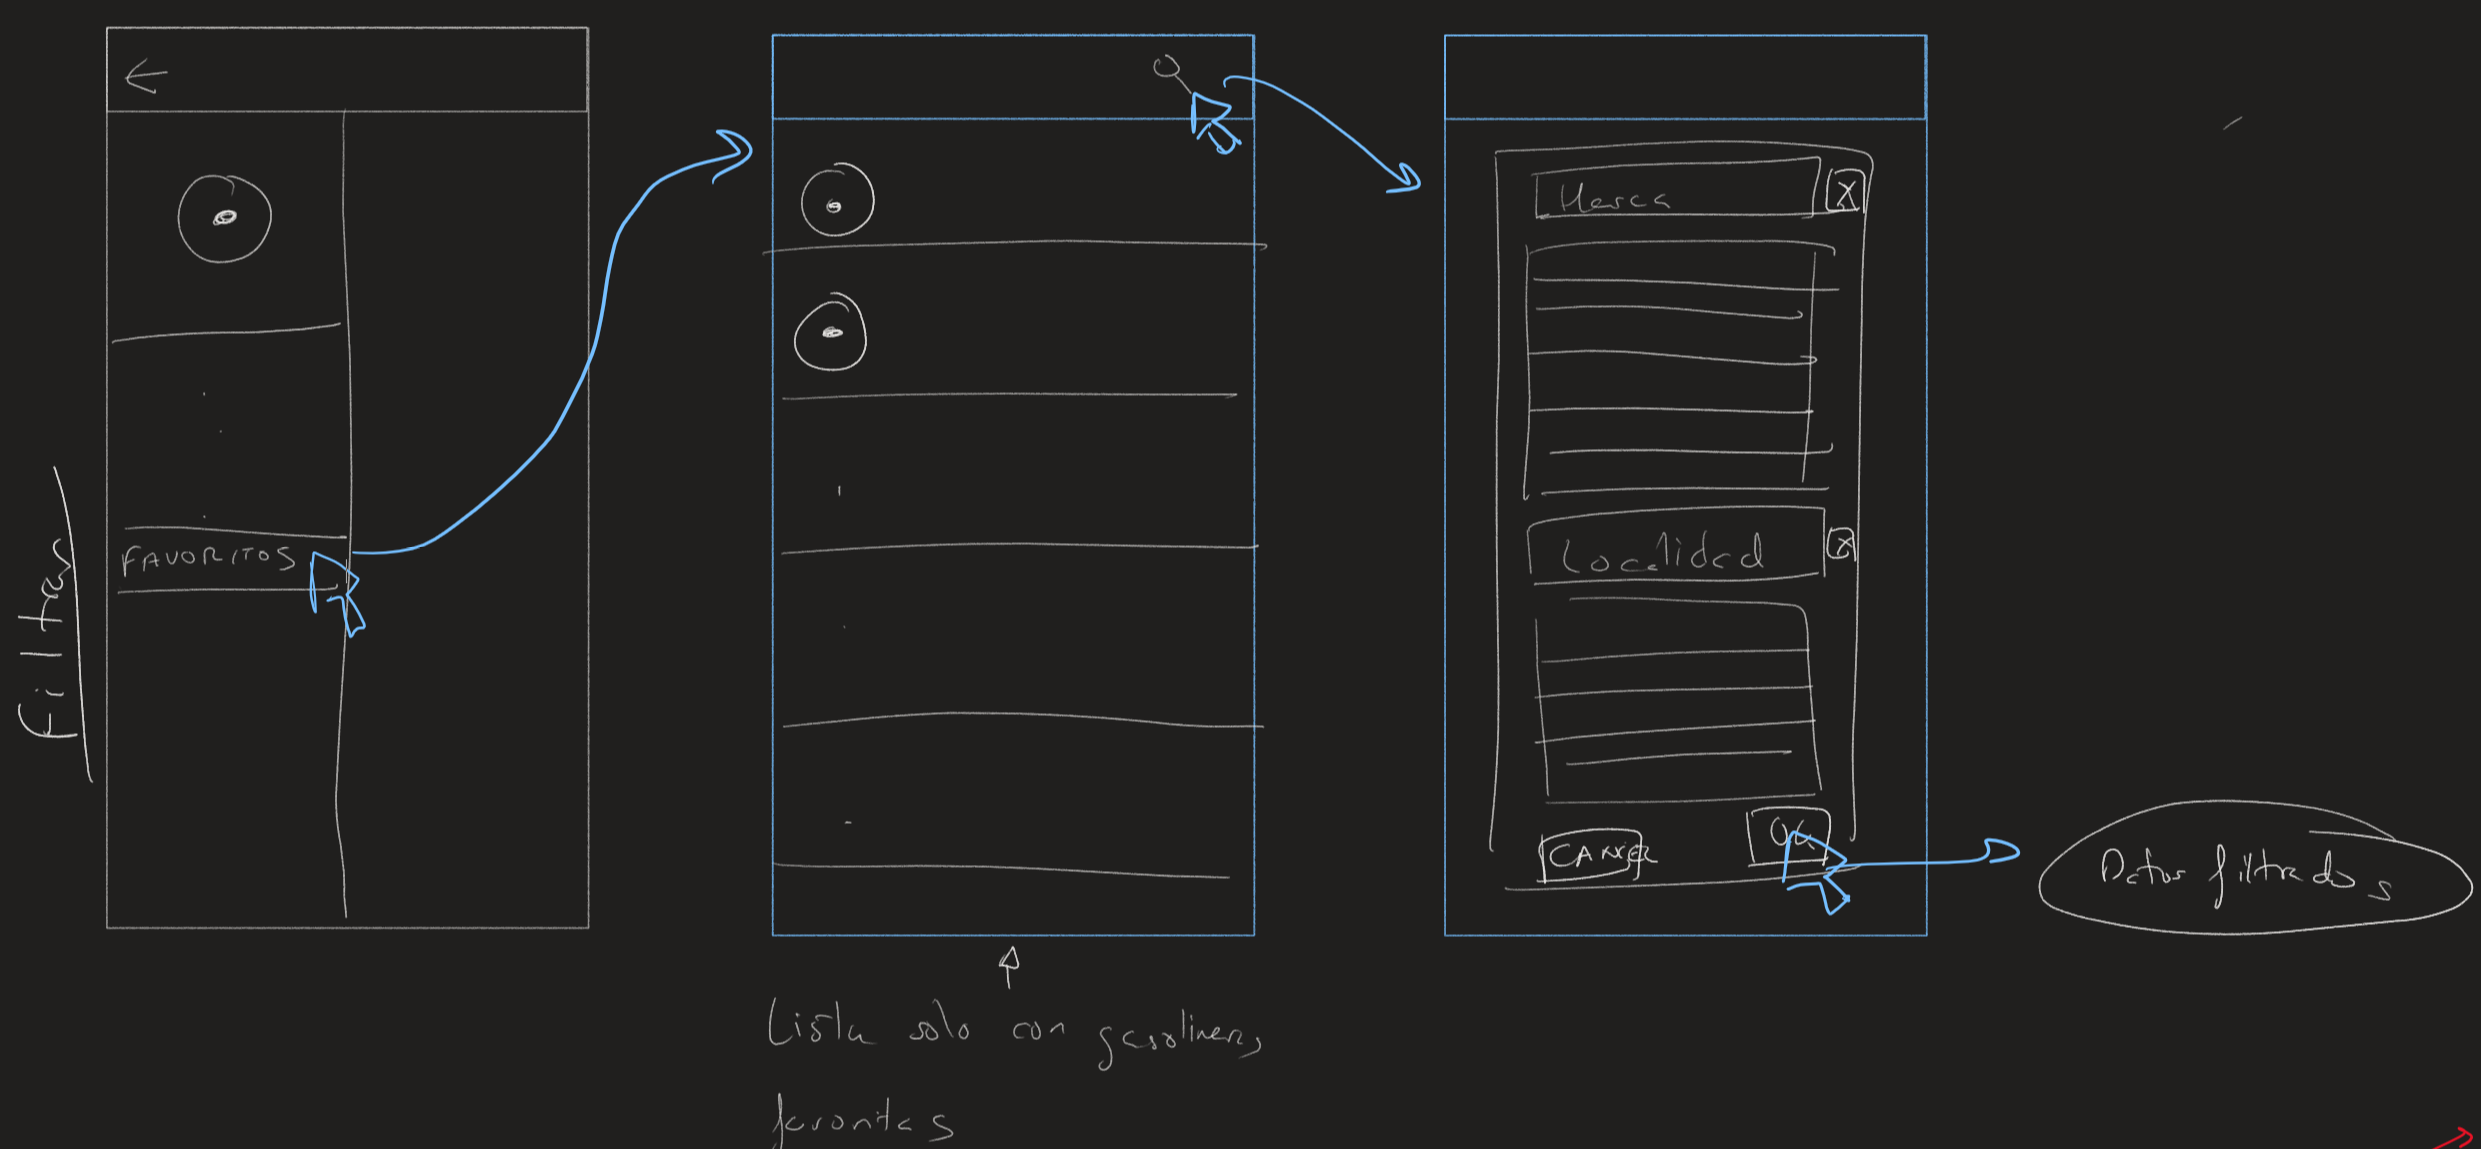 Filtros
FAVORITOS
Lista solo con gasolineras
favoritas
Marca
X
Localidad
X
CANCEL
OK
Datos filtrados